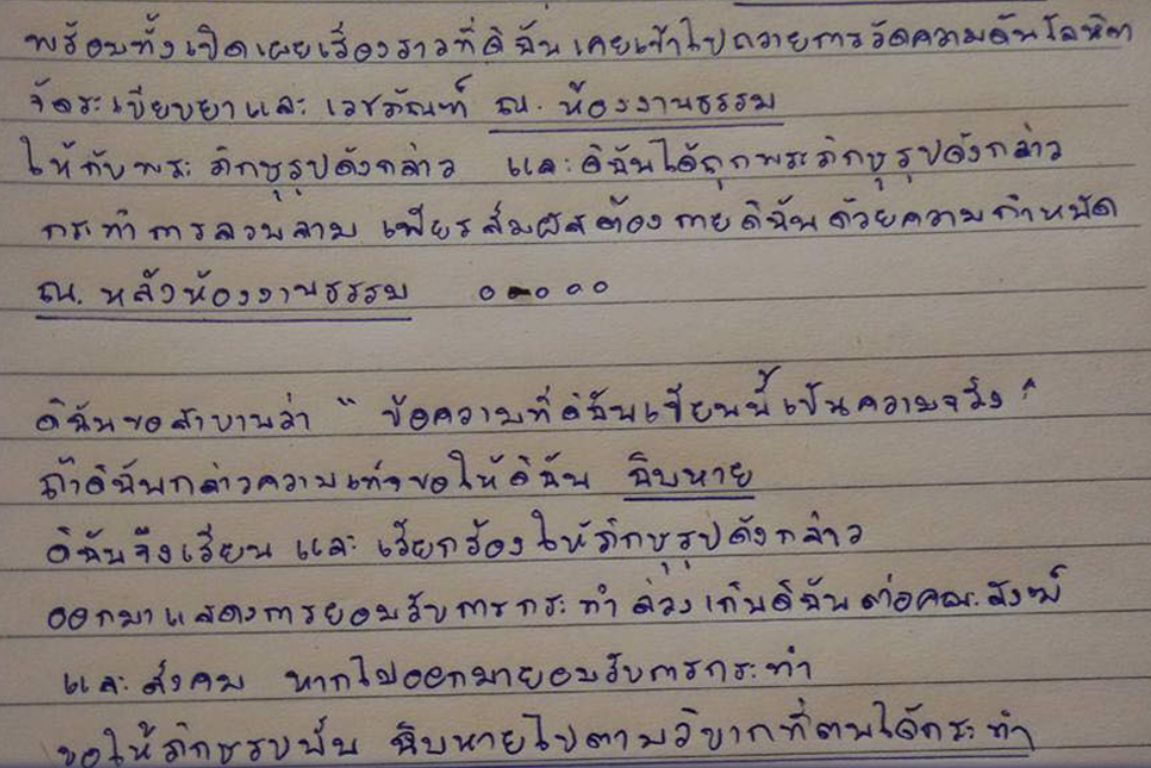 พร้อมทั้งเปิดเผยเรื่องราวที่ดิฉันเคยเข้าไปถวายการวัดความดันโลหิต
จัดระเบียบยาและ เวชภัณฑ์ ณ. ห้องงานธรรม
ให้กับพระ ภิกษุรูปดังกล่าว และดิฉันได้ถูกพระภิกษุรูปดังกล่าว
กระทำการลวนลาม เพียรสัมผัสต้องกายดิฉันด้วยความกำหนัด
ณ. หลังห้องงานธรรม
ดิฉันขอสาบานว่า " ข้อความที่ดิฉันเขียนนี้เป็นความจริง "
ถ้าดิฉันกล่าวความเท็จขอให้ดิฉัน ฉิบหาย
ดิฉันจึงเรียน และ เรียกร้องให้ภิกษุรูปดังกล่าว
ออกมาแสดงการยอมรับการกระทำล่วงเกินดิฉันต่อคณะสงฆ์
และ สังคม หากไม่ออกมายอมรับการกระทำ
ขอให้ภิกษุรูปนั้น ฉิบหายไปตามวิบากที่ตนได้กระทำ